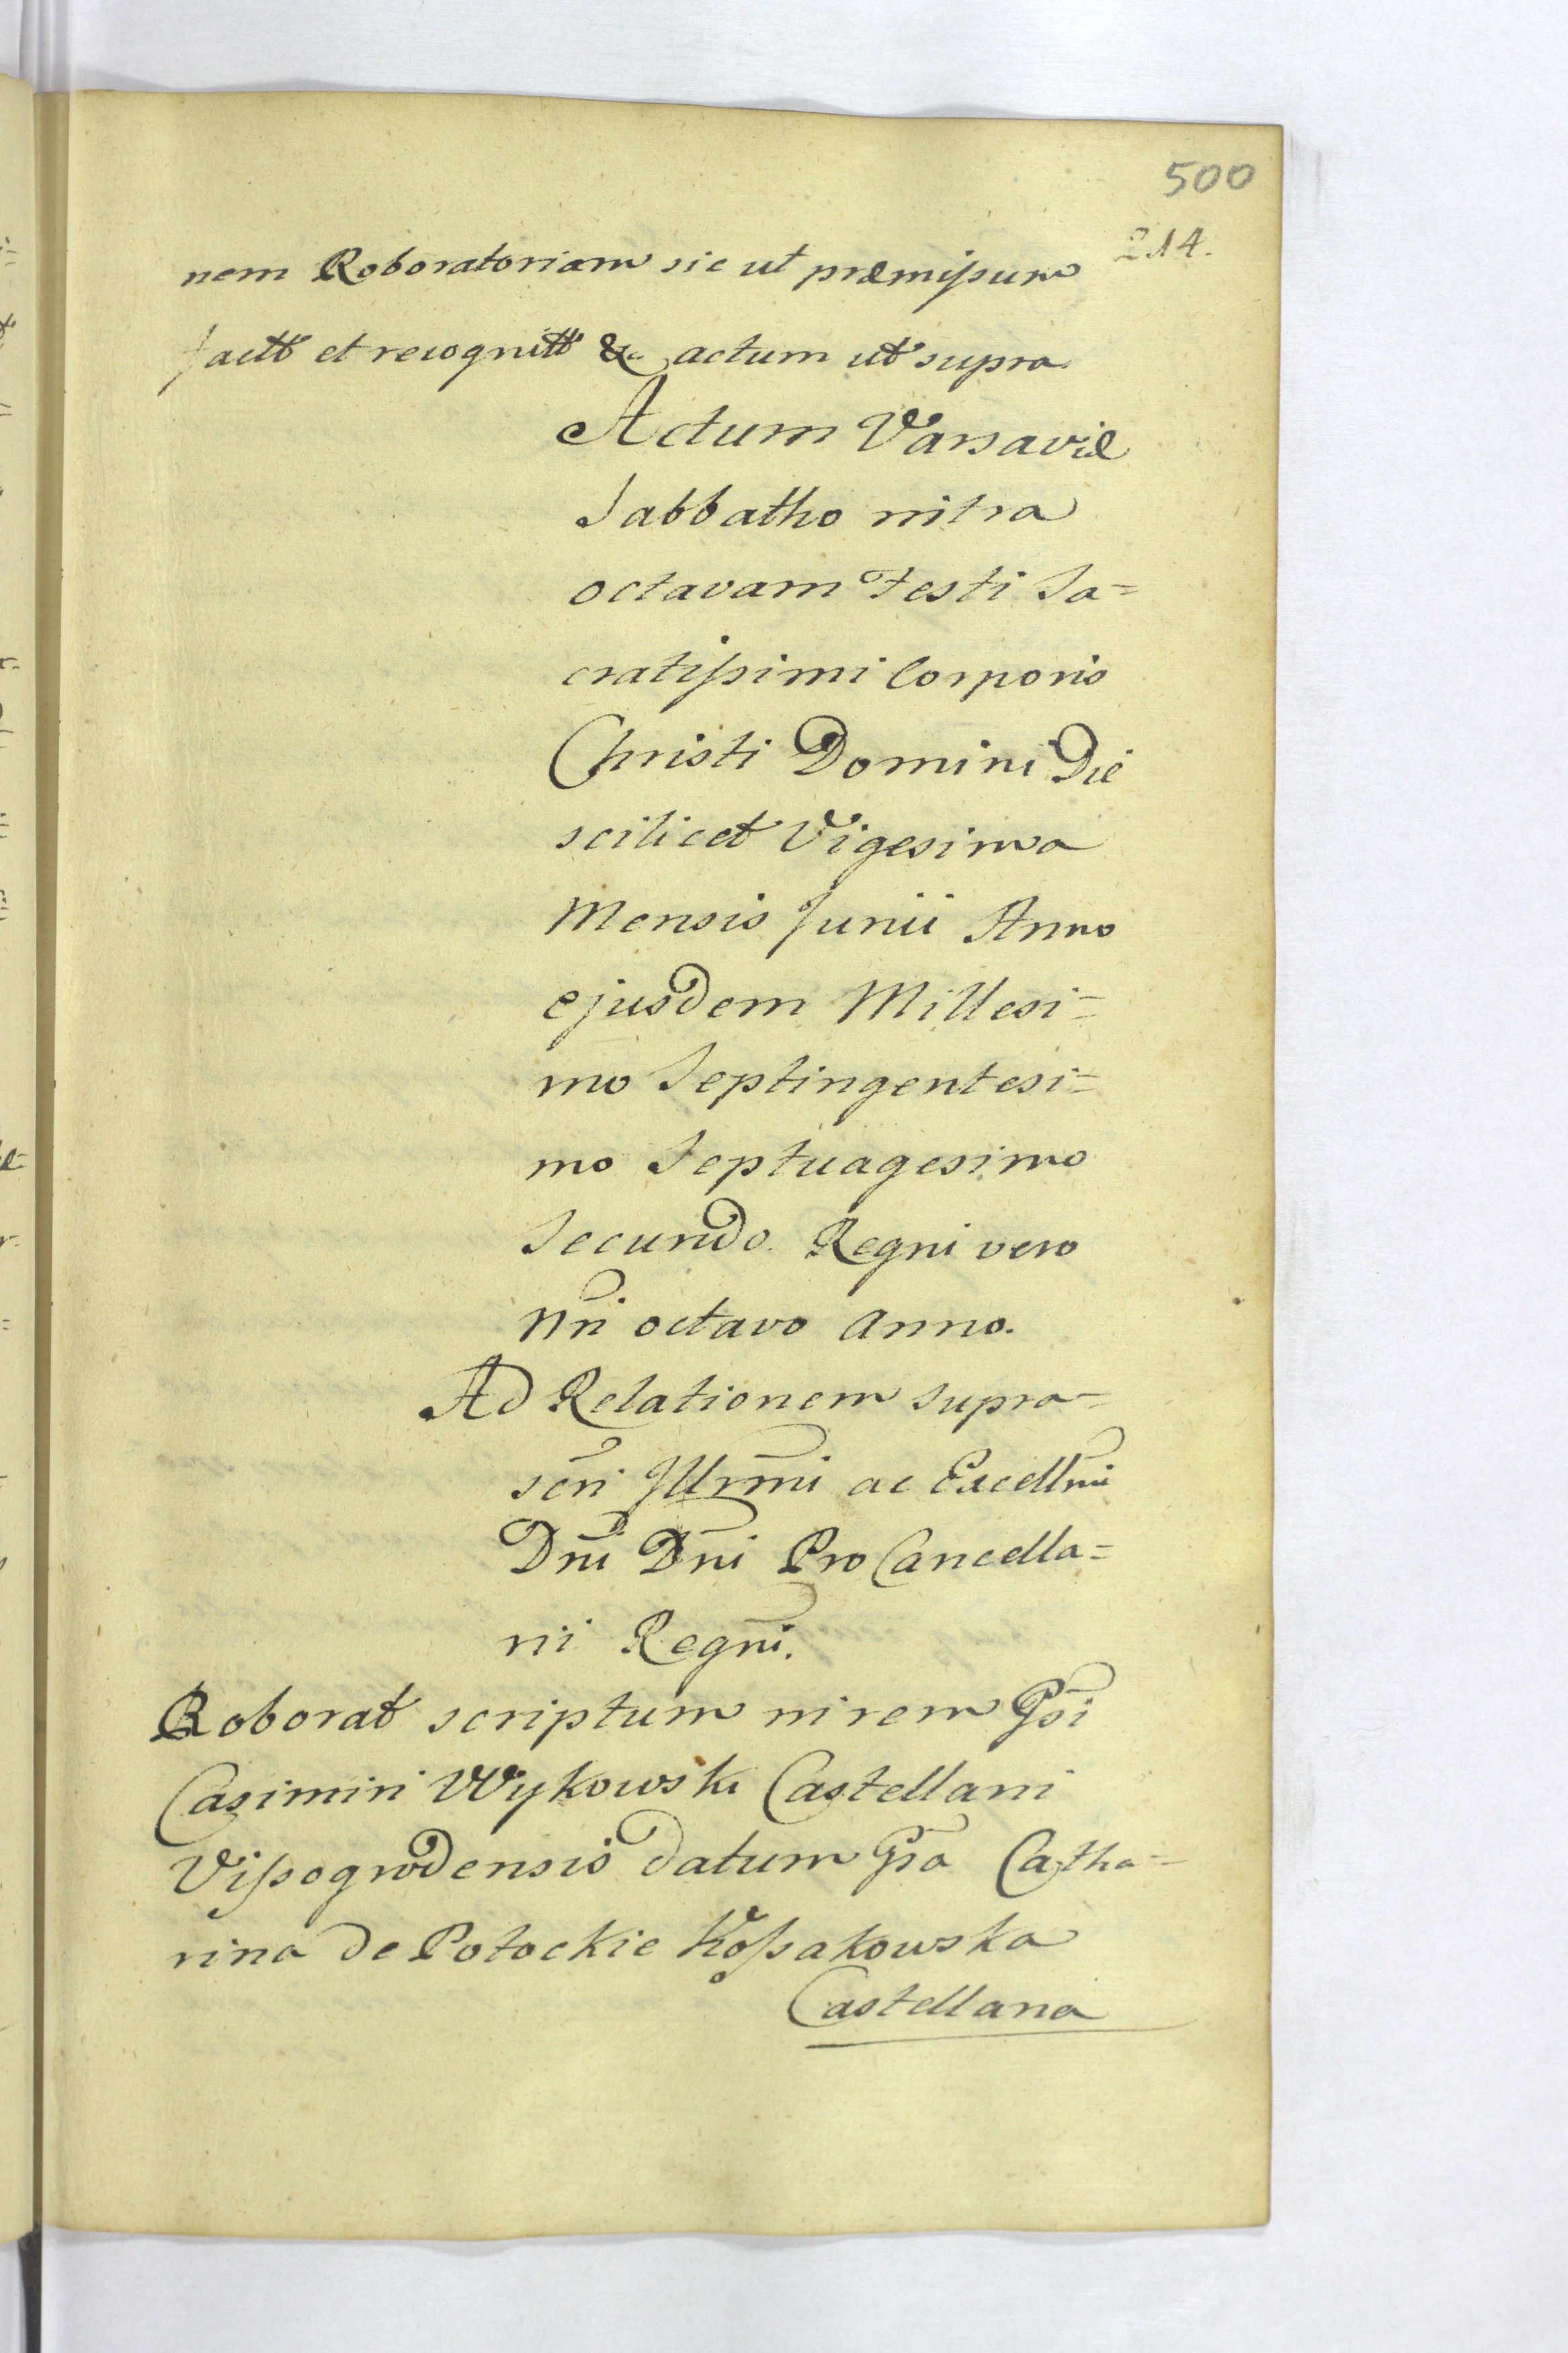 500
214.
nem Roboratoriam sic ut præmissum
factt et recognitt &c actum ut supra
Actum Varsaviæ
Sabbatho intra
octavam Festi Sa=
cratissimi Corporis
Christi Domini Die
scilicet Vigesima
Mensis Junii Anno
ejusdem Millesi=
mo Septingentesi=
mo Septuagesimo
Secundo. Regni vero
Nri octavo Anno.
Ad Relationem supra=
scri Illrmi ac Excellmi
Dni Dni Pro Cancella=
rii Regni.
Roborat scriptum in rem Gsi
Casimiri Wykowski Castellani
Vissogrodensis datum Gsa Catha=
rina de Potockie Kossakowska
Castellana